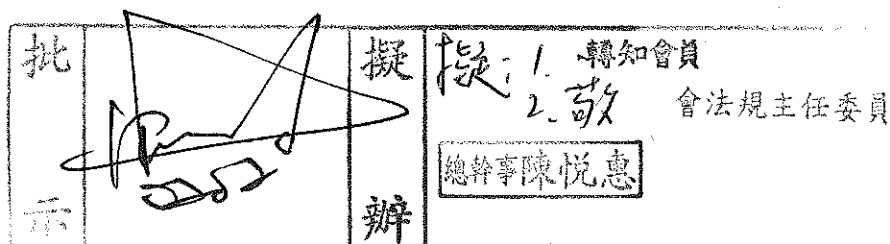 批示
擬辦
擬：1. 轉知會員
2. 敬會法規主任委員
總幹事陳悦惠